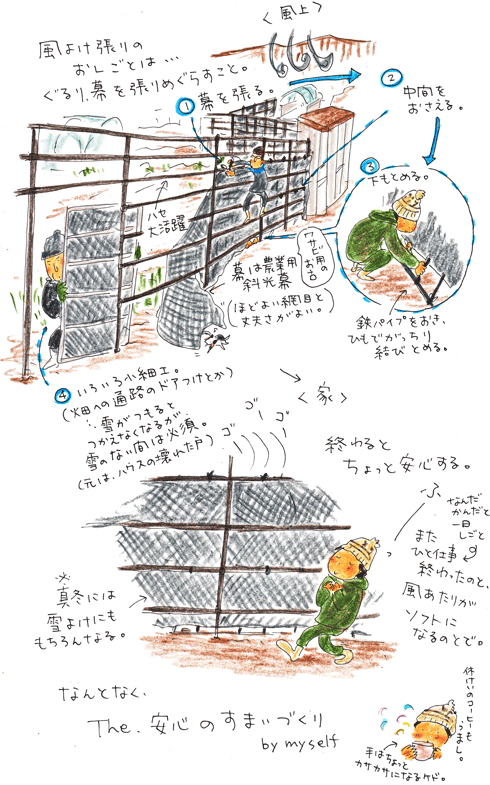 ＜風上＞
風よけ張りの
おしごとは…
ぐるり、幕を張りめぐらすこと。
① 幕を張る。
② 中間を
おさえる。
③ 下もとめる。
ハセ
大活躍
幕は農業用
斜光幕
ワサビ用の
お古
(ほどよい網目と
丈夫さがよい。)
鉄パイプをおき、
ひもでがっちり
結びとめる。
④ いろいろ小細工。
(畑への通路のドアつけとか)
∴雪がつもると
つかえなくなるが、
雪のない間は必須。
(元は、ハウスの壊れた戸)
＜家＞
ゴー
ゴー
ゴ
終わると
ちょっと安心する。
ふ
なんだ
かんだと
一日
しごと
また
ひと仕事
終わったのと、
風あたりが
ソフトに
なるのとで。
※
真冬には
雪よけにも
もちろんなる。
なんとなく、
The. 安心のすまいづくり
by myself
休けいのコーヒーも
うまし。
手はちょっと
カサカサになるケド。